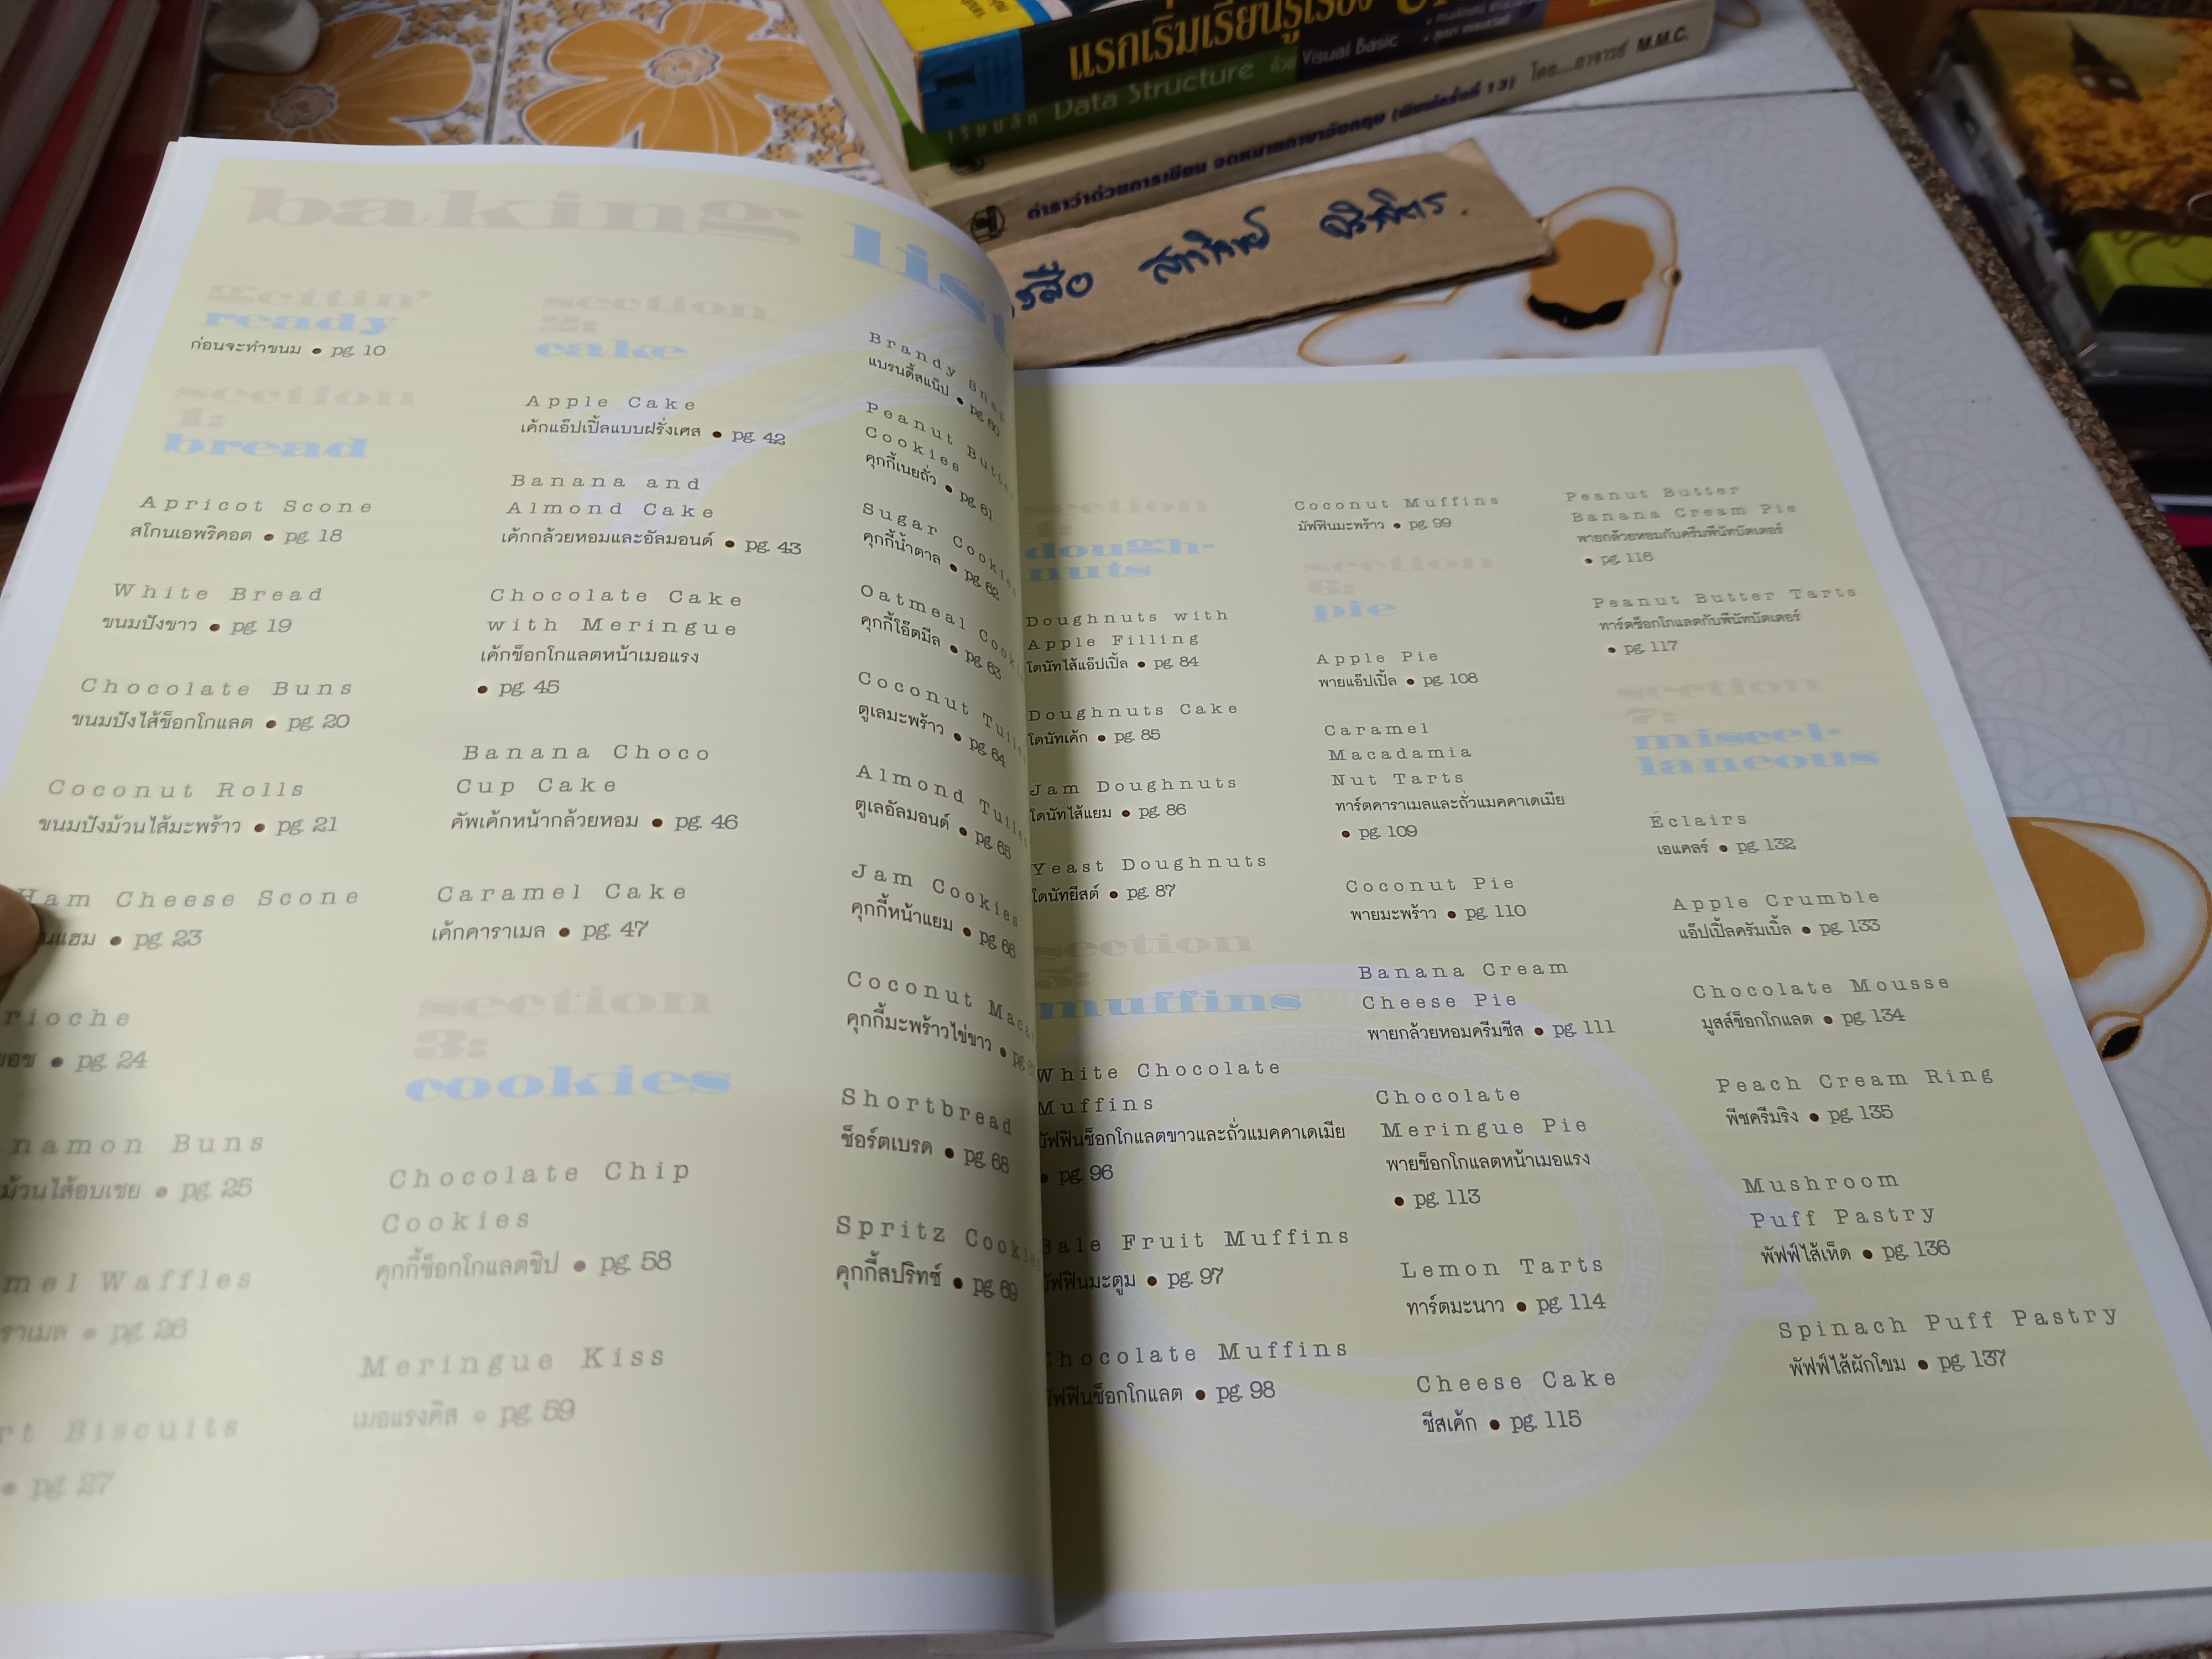 แรกเริ่มเรียนรู้เรื่อง
เรียนลัด Data Structure ด้วย Visual Basic
ตำราว่าด้วยการเขียน จดหมายภาษาอังกฤษ (พิมพ์ครั้งที่ 13) โดย....อาจารย์ M.M.C.
baking list
gettin'
ready
ก่อนจะทำขนม • pg. 10
section
1:
bread
Apricot Scone
สโกนเอพริคอต • pg. 18
White Bread
ขนมปังขาว • pg. 19
Chocolate Buns
ขนมปังไส้ช็อกโกแลต • pg. 20
Coconut Rolls
ขนมปังม้วนไส้มะพร้าว • pg. 21
Ham Cheese Scone
นแฮม • pg. 23
rioche
• pg. 24
namon Buns
ม้วนไส้อบเชย • pg. 25
mel Waffles
ราเมล • pg. 26
rt Biscuits
• pg. 27
section
2:
cake
Apple Cake
เค้กแอ๊ปเปิ้ลแบบฝรั่งเศส • pg. 42
Banana and
Almond Cake
เค้กกล้วยหอมและอัลมอนด์ • pg. 43
Chocolate Cake
with Meringue
เค้กช็อกโกแลตหน้าเมอแรง
• pg. 45
Banana Choco
Cup Cake
คัพเค้กหน้ากล้วยหอม • pg. 46
Caramel Cake
เค้กคาราเมล • pg. 47
section
3:
cookies
Chocolate Chip
Cookies
คุกกี้ช็อกโกแลตชิป • pg. 58
Meringue Kiss
เมอแรงคิส • pg. 59
Brandy Snap
แบรนดี้สแน็ป • pg. 60
Peanut Butter
Cookies
คุกกี้เนยถั่ว • pg. 61
Sugar Cookies
คุกกี้น้ำตาล • pg. 62
Oatmeal Cook
คุกกี้โอ๊ตมีล • pg. 63
Coconut Tuiles
ตูเลมะพร้าว • pg. 64
Almond Tuiles
ตูเลอัลมอนด์ • pg. 65
Jam Cookies
คุกกี้หน้าแยม • pg. 66
Coconut Maca
คุกกี้มะพร้าวไข่ขาว • pg.
Shortbread
ช็อร์ตเบรด • pg. 68
Spritz Cookies
คุกกี้สปริทซ์ • pg. 69
section
4:
dough-
nuts
Doughnuts with
Apple Filling
โดนัทไส้แอ๊ปเปิ้ล • pg. 84
Doughnuts Cake
โดนัทเค้ก • pg. 85
Jam Doughnuts
โดนัทไส้แยม • pg. 86
Yeast Doughnuts
โดนัทยีสต์ • pg. 87
section
5:
muffins
White Chocolate
Muffins
มัฟฟินช็อกโกแลตขาวและถั่วแมคคาเดเมีย
• pg. 96
Bale Fruit Muffins
มัฟฟินมะตูม • pg. 97
Chocolate Muffins
มัฟฟินช็อกโกแลต • pg. 98
Coconut Muffins
มัฟฟินมะพร้าว • pg. 99
section
6:
pie
Apple Pie
พายแอ๊ปเปิ้ล • pg. 108
Caramel
Macadamia
Nut Tarts
ทาร์ตคาราเมลและถั่วแมคคาเดเมีย
• pg. 109
Coconut Pie
พายมะพร้าว • pg. 110
Banana Cream
Cheese Pie
พายกล้วยหอมครีมชีส • pg. 111
Chocolate
Meringue Pie
พายช็อกโกแลตหน้าเมอแรง
• pg. 113
Lemon Tarts
ทาร์ตมะนาว • pg. 114
Cheese Cake
ชีสเค้ก • pg. 115
Peanut Butter
Banana Cream Pie
พายกล้วยหอมกับครีมพีนัทบัตเตอร์
• pg. 116
Peanut Butter Tarts
ทาร์ตช็อกโกแลตกับพีนัทบัตเตอร์
• pg. 117
section
7:
miscel-
laneous
Éclairs
เอแคลร์ • pg. 132
Apple Crumble
แอ๊ปเปิ้ลครัมเบิ้ล • pg. 133
Chocolate Mousse
มูสส์ช็อกโกแลต • pg. 134
Peach Cream Ring
พีชครีมริง • pg. 135
Mushroom
Puff Pastry
พัฟฟ์ไส้เห็ด • pg. 136
Spinach Puff Pastry
พัฟฟ์ไส้ผักโขม • pg. 137